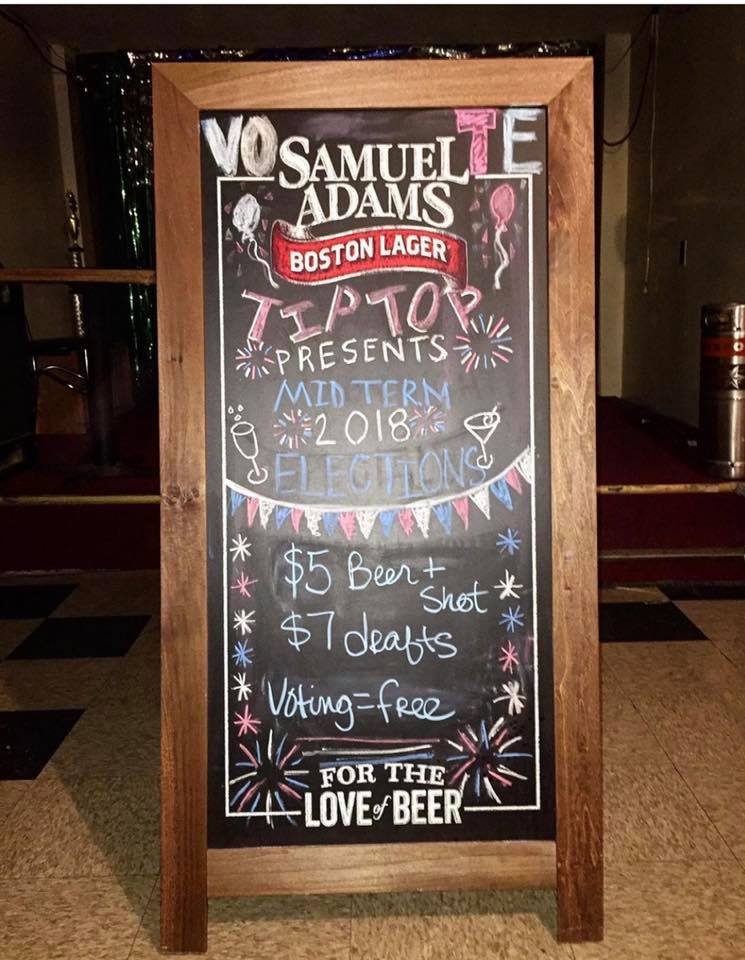 VOTE
SAMUEL
ADAMS
BOSTON LAGER
TIP TOP
PRESENTS
MID TERM
2018
ELECTIONS
$5 Beer +
Shot
$7 deafts
Voting = free
FOR THE
LOVE of BEER